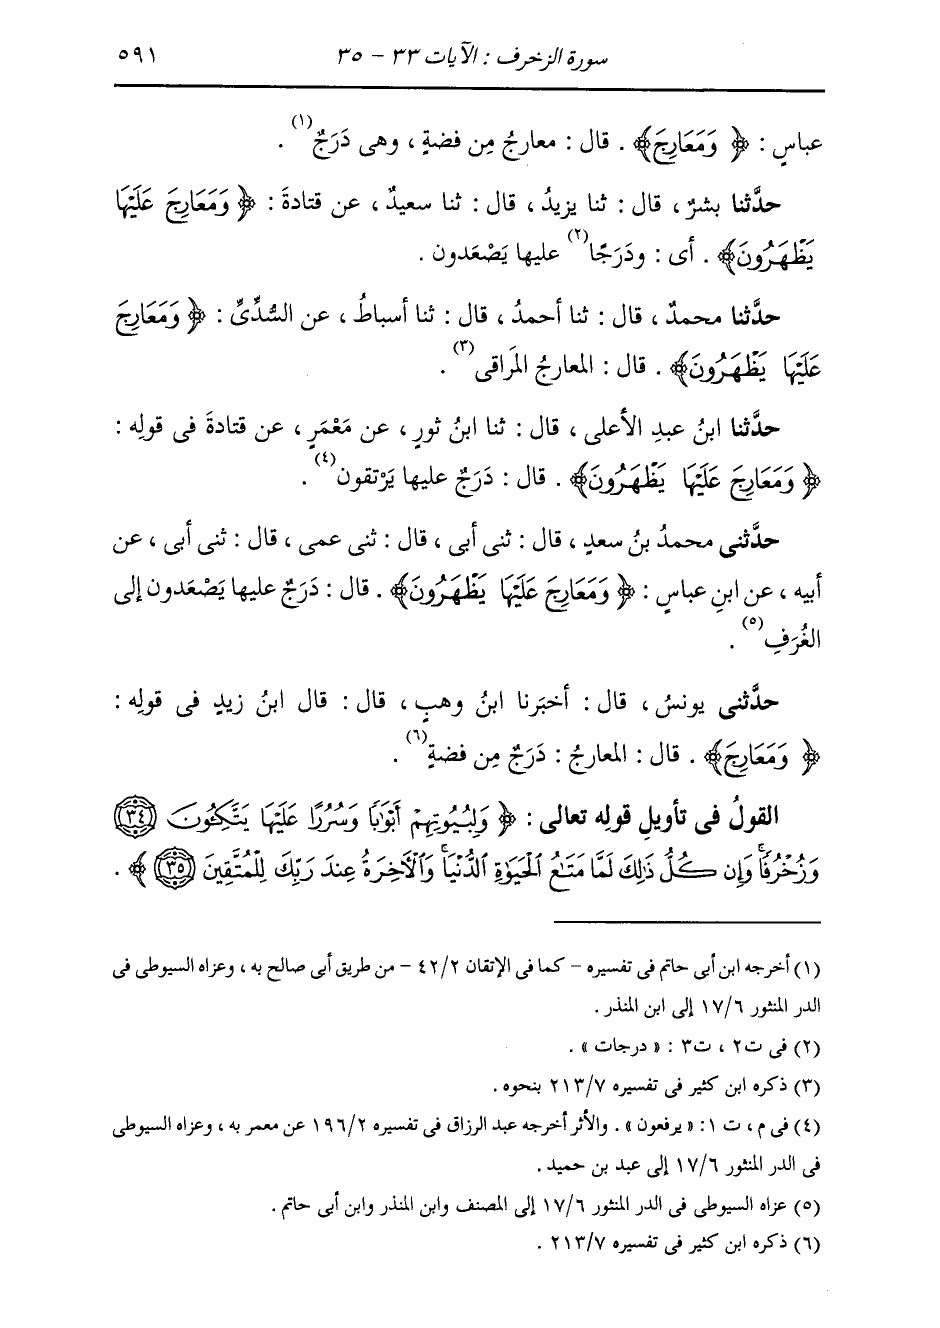 سورة الزخرف : الآيات ٣٣ - ٣٥ ٥٩١
عباسٍ : ﴿ وَمَعَارِجَ ﴾ . قال : معارجُ مِن فضةٍ ، وهى دَرَجٌ(١) .
حدَّثنا بشرٌ ، قال : ثنا يزيدُ ، قال : ثنا سعيدٌ ، عن قتادةَ : ﴿ وَمَعَارِجَ عَلَيْهَا
يَظْهَرُونَ ﴾ . أى : ودَرَجًا(٢) عليها يَصْعَدون .
حدَّثنا محمدٌ ، قال : ثنا أحمدُ ، قال : ثنا أسباطُ ، عن السُّدِّىِّ : ﴿ وَمَعَارِجَ
عَلَيْهَا يَظْهَرُونَ ﴾ . قال : المعارجُ المَراقى(٣) .
حدَّثنا ابنُ عبدِ الأعلى ، قال : ثنا ابنُ ثورٍ ، عن مَعْمَرٍ ، عن قتادةَ فى قولِه :
﴿ وَمَعَارِجَ عَلَيْهَا يَظْهَرُونَ ﴾ . قال : دَرَجٌ عليها يَرْتقون(٤) .
حدَّثنى محمدُ بنُ سعدٍ ، قال : ثنى أبى ، قال : ثنى عمى ، قال : ثنى أبى ، عن
أبيه ، عن ابنِ عباسٍ : ﴿ وَمَعَارِجَ عَلَيْهَا يَظْهَرُونَ ﴾ . قال : دَرَجٌ عليها يَصْعَدون إلى
الغُرَفِ(٥) .
حدَّثنى يونسُ ، قال : أخبَرنا ابنُ وهبٍ ، قال : قال ابنُ زيدٍ فى قولِه :
﴿ وَمَعَارِجَ ﴾ . قال : المعارجُ : دَرَجٌ مِن فضةٍ(٦) .
القولُ فى تأويلِ قولِه تعالى : ﴿ وَلِبُيُوتِهِمْ أَبْوَٰبًا وَسُرُرًا عَلَيْهَا يَتَّكِـُٔونَ ٣٤
وَزُخْرُفًا ۚ وَإِن كُلُّ ذَٰلِكَ لَمَّا مَتَـٰعُ ٱلْحَيَوٰةِ ٱلدُّنْيَا ۚ وَٱلْـَٔاخِرَةُ عِندَ رَبِّكَ لِلْمُتَّقِينَ ٣٥ ﴾ .
(١) أخرجه ابن أبى حاتم فى تفسيره - كما فى الإتقان ٤٢/٢ - من طريق أبى صالح به ، وعزاه السيوطى فى
الدر المنثور ١٧/٦ إلى ابن المنذر .
(٢) فى ت٢ ، ت٣ : « درجات » .
(٣) ذكره ابن كثير فى تفسيره ٢١٣/٧ بنحوه .
(٤) فى م ، ت ١ : « يرفعون » . والأثر أخرجه عبد الرزاق فى تفسيره ١٩٦/٢ عن معمر به ، وعزاه السيوطى
فى الدر المنثور ١٧/٦ إلى عبد بن حميد .
(٥) عزاه السيوطى فى الدر المنثور ١٧/٦ إلى المصنف وابن المنذر وابن أبى حاتم .
(٦) ذكره ابن كثير فى تفسيره ٢١٣/٧ .